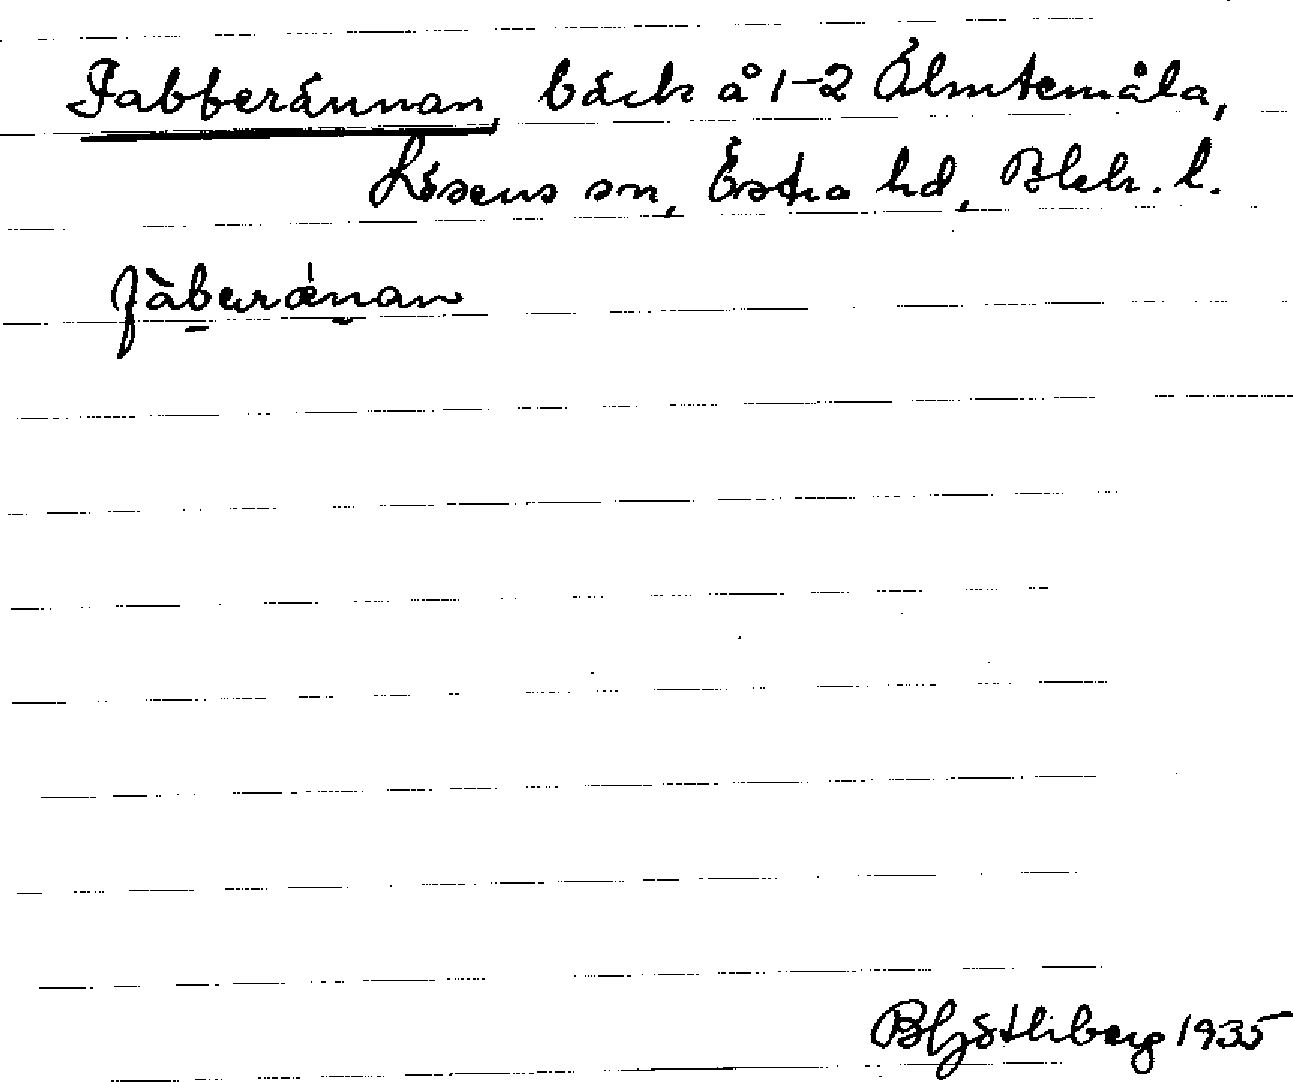 Fabberännan, bäck å 1-2 Älmtemåla,
Lösens sn, Östra hd, Blek. l.
fàbərǽnan
B Hjöthberg 1935